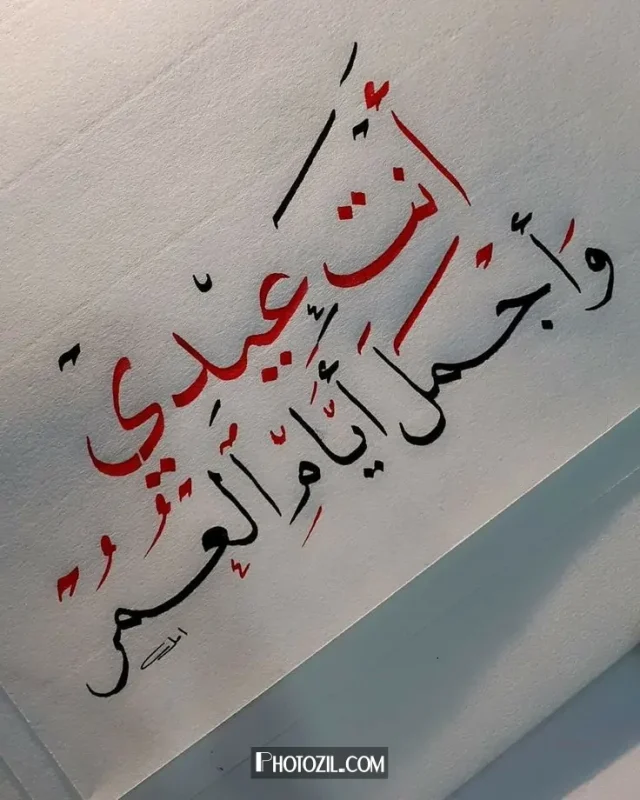 أنتَ عيدي
وَأجمل أيَّامِ ألعمر
PHOTOZIL.COM